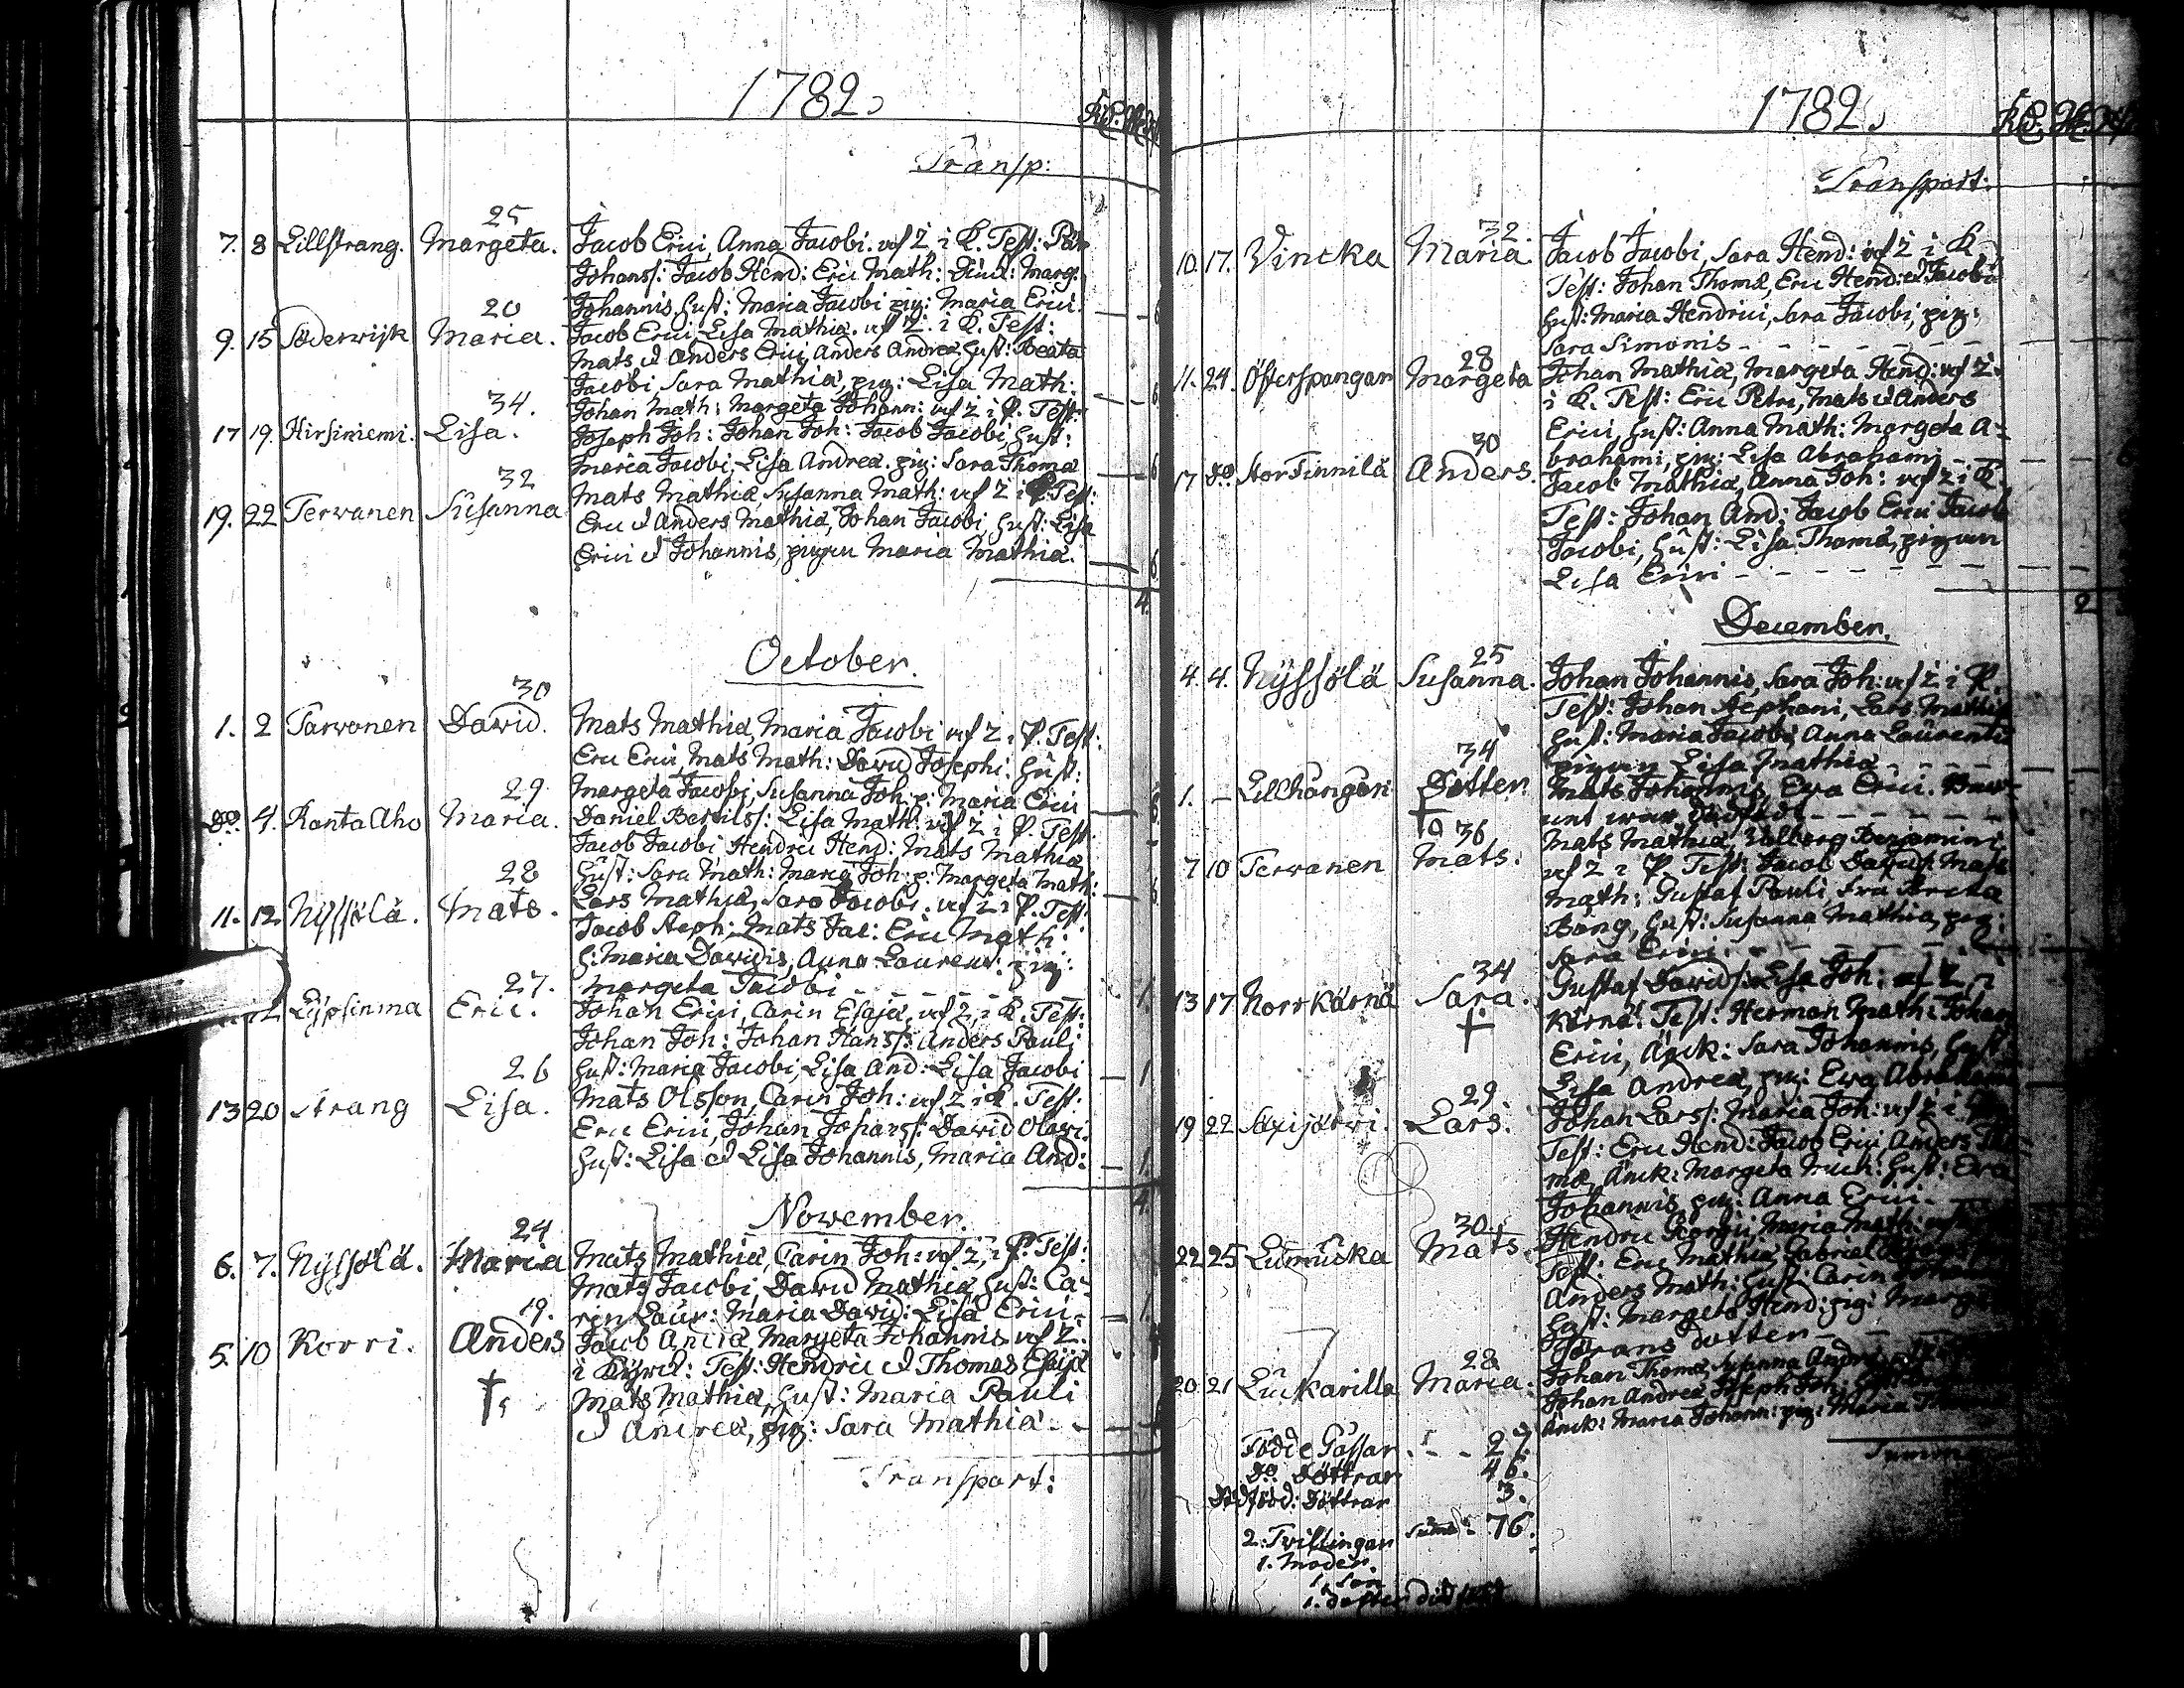 1782
Transp:
25
7. 8 Lillstrang. Margeta. Jacob Erici, Anna Jacobi. uf Z i K. Test: Pär
Johanss: Jacob Hend: Eric Math: Marg:
Johannis, Hust: Maria Jacobi pig: Maria Erici.
20
9. 15 Söderwisk Maria. Jacob Erici, Lisa Mathiæ. uf Z. i K. Test:
Mats & Anders Erici, Anders Andreæ Hust: Beata
Jacobi Sara Mathiæ, pig: Lisa Math:
34.
17 19. Hirsiniemi. Lisa. Johan Math: Margeta Johann: uf Z i P. Test:
Joseph Joh: Johan Joh: Jacob Jacobi, Hust:
Maria Jacobi, Lisa Andreæ. pig: Sara Thomæ
32
19. 22 Terwanen Susanna Mats Mathiæ, Susanna Math: uf Z i P. Test:
Eric & Anders Mathiæ, Johan Jacobi, Hust: Lisa
Erici & Johannis, pigan Maria Mathiæ.
4.
October.
30
1. 2 Tarvonen David. Mats Mathiæ, Maria Jacobi uf Z i P. Test:
Eric Erici, Mats Math: David Josephi. Hust:
Margeta Jacobi, Susanna Joh: p: Maria Erici
29
do. 4. Ranta Aho Maria. Daniel Bertilss: Lisa Math: uf Z i P. Test:
Jacob Jacobi Hendric Hend: Mats Mathiæ
Hust: Sara Math: Maria Joh: p: Margeta Math:
28
11. 12 Nyssölä. Mats. Lars Mathiæ, Sara Jacobi. uf Z i P. Test:
Jacob Steph: Mats Jac: Eric Math:
H: Maria Davidis, Anna Laurent: pig:
Margeta Jacobi
27.
12 Lypsinma Eric. Johan Erici, Carin Esajæ, uf Z, i K. Test:
Johan Joh: Johan Hanss: Anders Pauli
Hust: Maria Jacobi, Lisa And: Lisa Jacobi
26
13 20 Strang Lisa. Mats Olsson, Carin Joh: uf Z i K. Test:
Eric Erici, Johan Johanss: David Olavi.
Hust: Lisa & Lisa Johannis, Maria And:
4.
November.
24
6. 7. Nyssölä. Maria Mats Mathiæ, Carin Joh: uf Z, i P. Test:
Mats Jacobi, David Mathiæ, Hust: Ca-
rin Laur: Maria David: Lisa Erici.
19.
5. 10 Korri. Anders † Jacob Andreæ, Margeta Johannis uf Z.
i Test: Hendric & Thomas Esajæ
Mats Mathiæ, Hust: Maria Pauli
& Andreæ, pig: Sara Mathiæ
Transport:
1782
Transport:
32.
10. 17. Vincka Maria. Jacob Jacobi, Sara Hend: uf Z i K
Test: Johan Thomæ, Eric Hend: & Jacobi
Hust: Maria Hendrici, Sara Jacobi, pig:
Sara Simonis
28
11. 24. Österspangar Margeta Johan Mathiæ, Margeta Hend: uf Z.
i K. Test: Eric Petri, Mats & Anders
Erici, Hust: Anna Math: Margeta A-
brahami, pig: Lisa Abrahami
30
17 do StorFinnilä Anders. Jacob Mathiæ, Anna Joh: uf Z i K.
Test: Johan And: Jacob Erici Jacob
Jacobi, Hust: Lisa Thomæ, pigan
Lisa Erici
2
December.
25
4. 4. Nyssölä Susanna. Johan Johannis, Sara Joh: uf Z i P.
Test: Johan Stephani, Lars Mathiæ
Hust: Maria Jacobi, Anna Laurentii
pigan Lisa Mathiæ
34
1. – Lillhangan Dotter † Mats Johannis, Eva Erici. Bar-
net war dödfödt
36
7 10 Terwanen Mats. Mats Mathiæ, Valborg Benjamini
uf Z i P. Test: Jacob Davids: Mats
Math: Gustaf Pauli, Fru
Bång, Hust: Susanna Mathiæ, pig:
Sara Erici.
34
13 17 Norrkärnä Sara. † Gustaf Davids: Lisa Joh: uf Z i
Kärnä. Test: Herman Math: Johan
Erici, Änck: Sara Johannis, Hust:
Lisa Andreæ, pig: Eva
29.
19 22 Säxijärvi. Lars. Johan Larss: Maria Joh: uf Z i
Test: Eric Hend: Jacob Erici, Anders Tho-
mæ, Änck: Margeta Mich: Hust: Eva
Johannis, pig: Anna Erici.
30.
22 25 Lumuska Mats. Hendric Maria Math: uf
Test: Eric Mathiæ, Gabriel
Anders Math: Hust: Carin
Hust: Margeta Hend: pig:
Görans dotter
28
20. 21 Luckarilla Maria. Johan Thomæ, Susanna Andreæ
Johan Andreæ, Joseph Joh:
Änck: Maria Johann: pig: Maria
Summa
Födde Gossar 27.
do Döttrar 46.
Dödföd: Döttrar 3.
Sum̄a 76.
2: Tvillingar
1. Moder.
1. Son
1. dotter